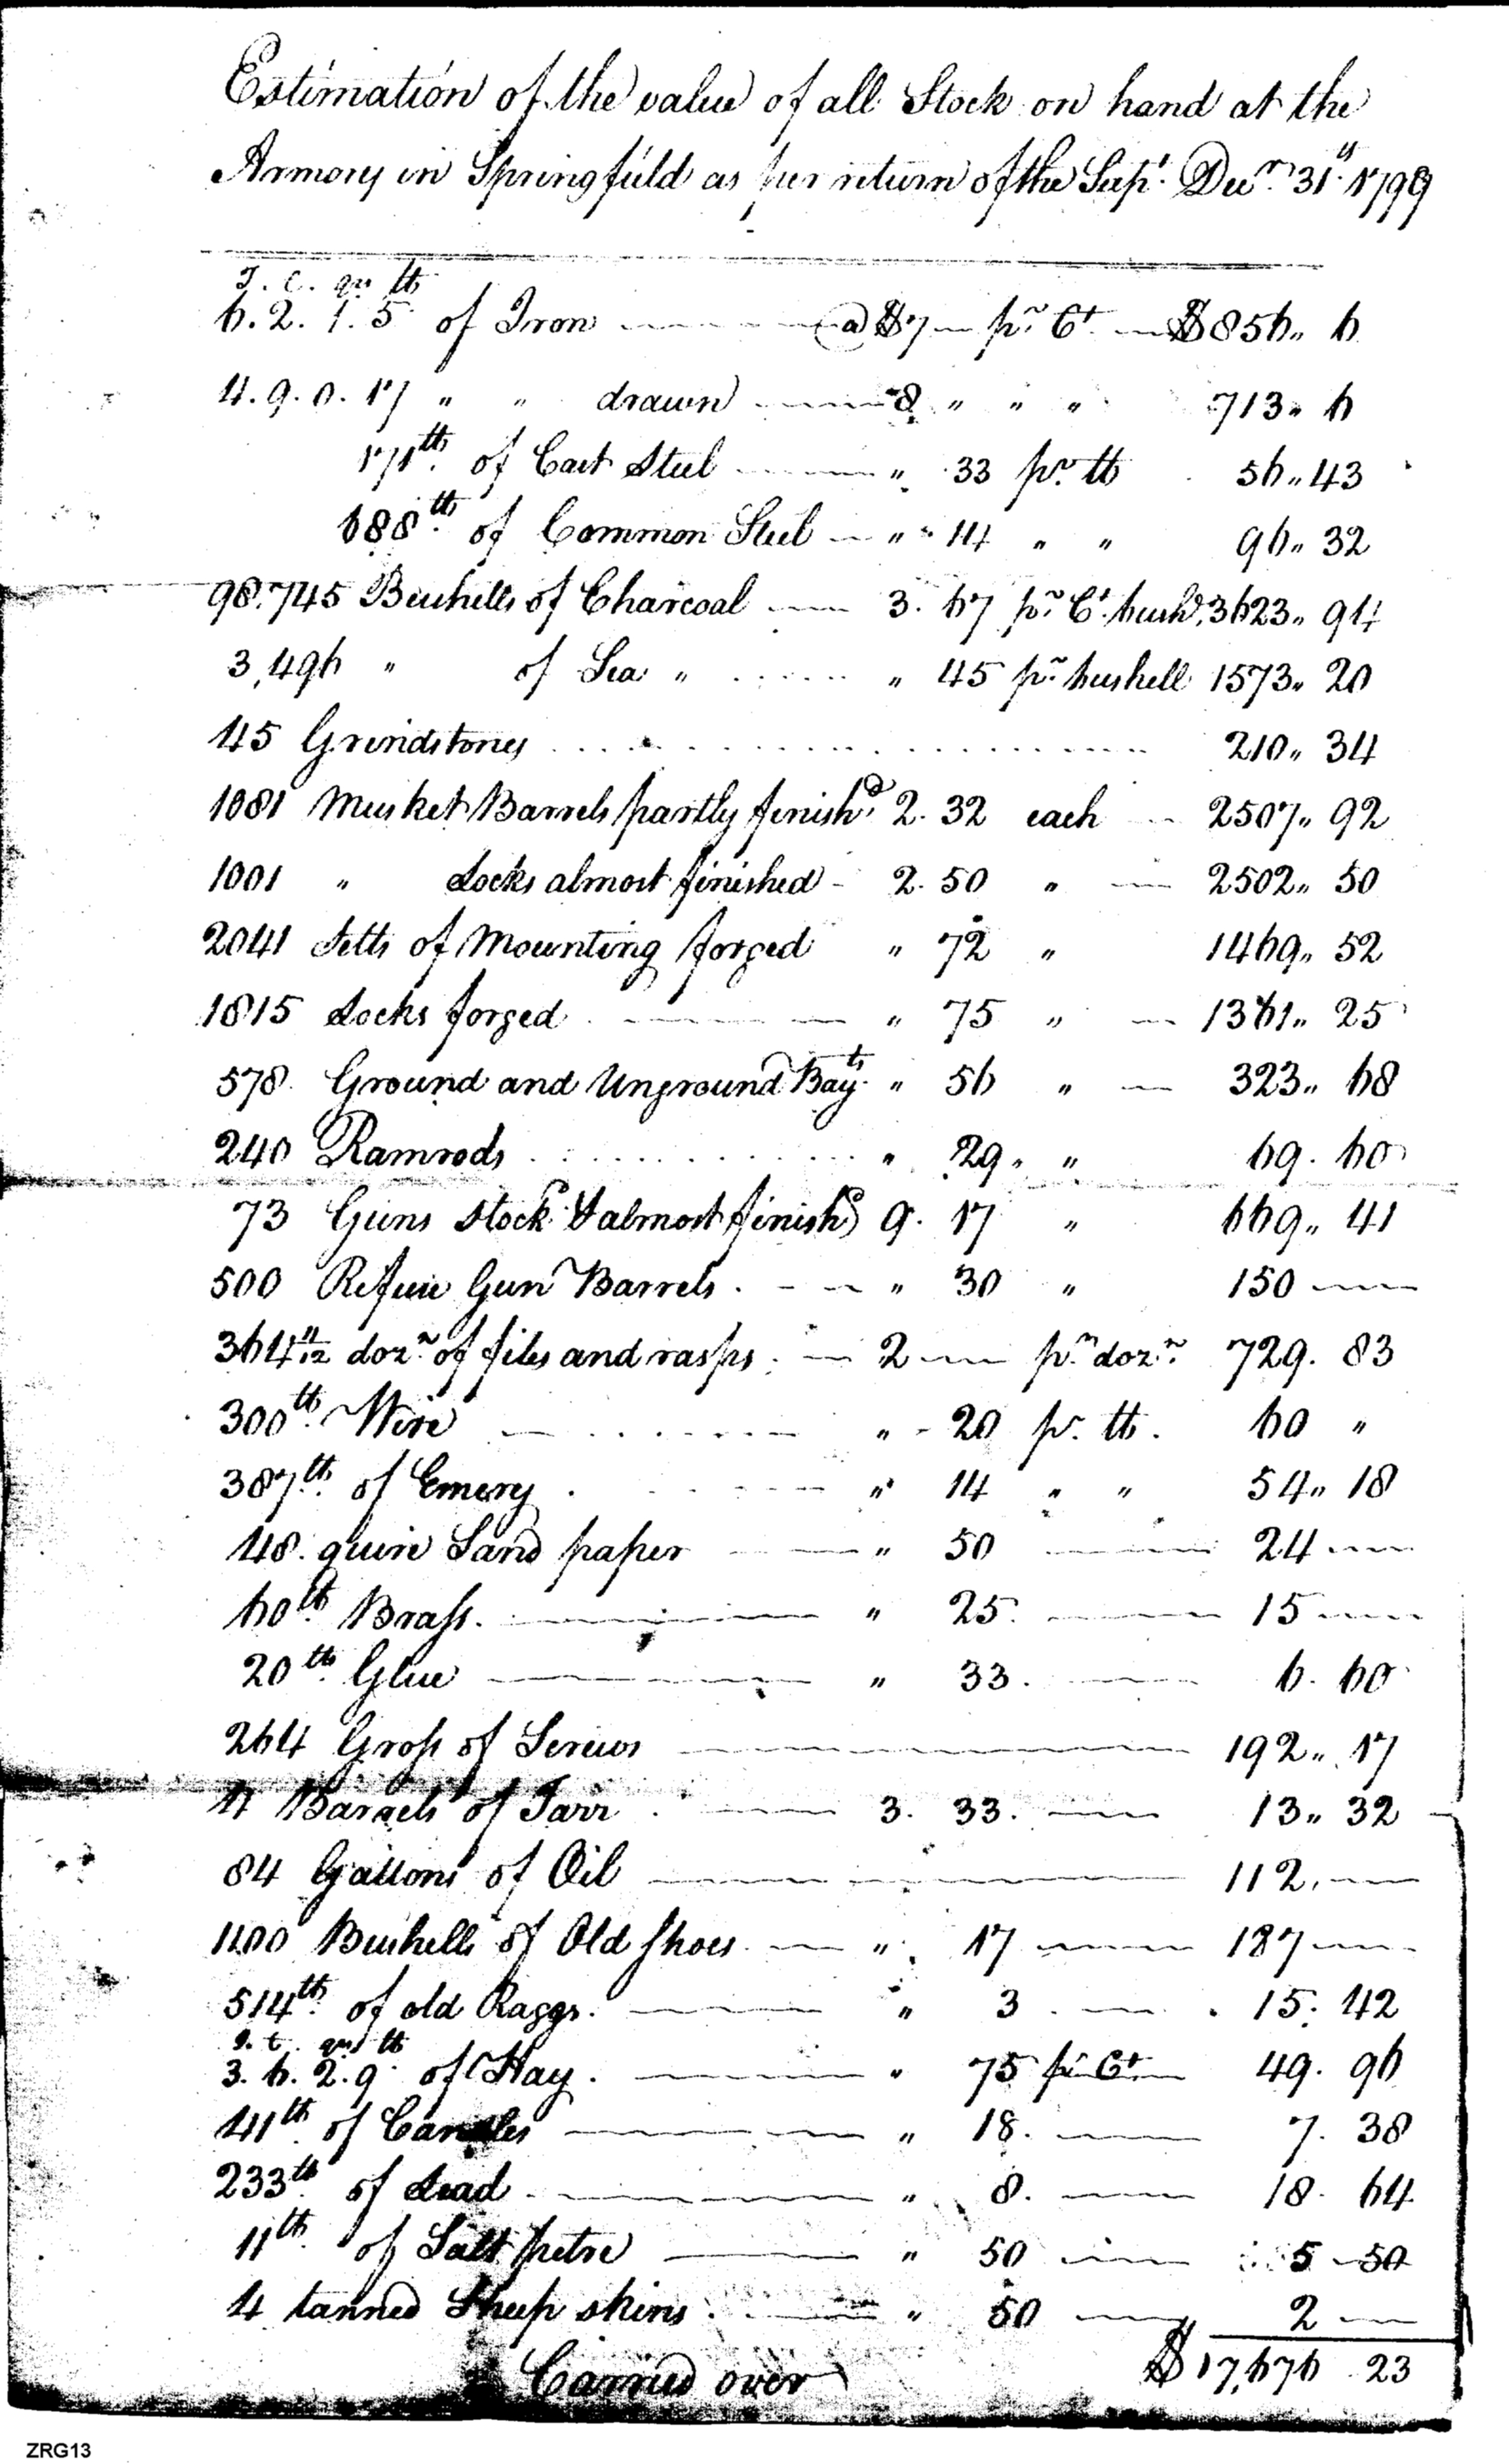 Estimation of the value of all Stock on hand at the
Armory in Springfield as per return of the Supt. Decr. 31st 1799
T. C. qrs lb
6. 2. 1. 5 of Iron @ $7 pr Ct $856„ 6
4. 9. 0. 17 „ „ drawn 8 „ „ „ 713„ 6
171 lb of Cast Steel „ 33 pr. lb 56„ 43
688 lb of Common Steel „ 14 „ „ 96„ 32
98.745 Bushells of Charcoal 3. 67 pr. Ct. bushs. 3623„ 94
3,496 „ of Sea „ „ 45 pr. bushell 1573„ 20
45 Grindstones 210„ 34
1081 Musket Barrels partly finishd. 2. 32 each 2507„ 92
1001 „ Locks almost finished 2. 50 „ 2502„ 50
2041 Setts of Mounting forged „ 72 „ 1469„ 52
1815 Locks forged „ 75 „ 1361„ 25
578 Ground and Unground Bayts. „ 56 „ 323„ 68
240 Ramrods „ 29 „ „ 69. 60
73 Guns stockd. & almost finishd 9. 17 „ 669„ 41
500 Refuse Gun Barrels. „ 30 „ 150
364 11/12 dozn. of files and rasps. 2 pr. dozn. 729. 83
300 lb. Wire „ 20 pr. lb. 60 „
387 lb. of Emery „ 14 „ „ 54„ 18
48. quire Sand paper „ 50 24
60 lb Brass. „ 25. 15
20 lb. Glue „ 33. 6. 60
264 Gross of Screws 192„ 17
4 Barrels of Tarr 3. 33. 13„ 32
84 Gallons of Oil 112.
1100 Bushells of Old Shoes „ 17 187
514 lb. of old Raggs. „ 3 15. 42
T. C. qrs lb
3. 6. 2. 9 of Hay. „ 75 pr Ct 49. 96
41 lb. of Candles „ 18. 7. 38
233 lb. of Lead „ 8. 18. 64
11 lb. of Salt petre „ 50 5 50
4 tanned Sheep skins „ 50 2
Carried over $17,676 23
ZRG13